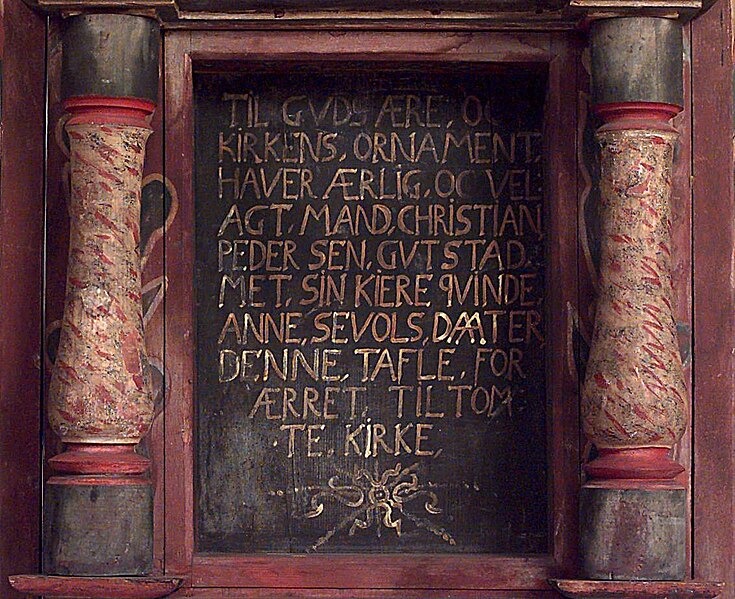 TIL GVDS ÆRE, OC
KIRKENS, ORNAMENT,
HAVER ÆRLIG, OC VEL
AGT, MAND, CHRISTIAN,
PEDER SEN, GVTSTAD
MET, SIN KIERE, QVINDE,
ANNE, SEVOLS, DAATER
DENNE, TAFLE, FOR
ÆRRET, TIL TOM
TE, KIRKE,